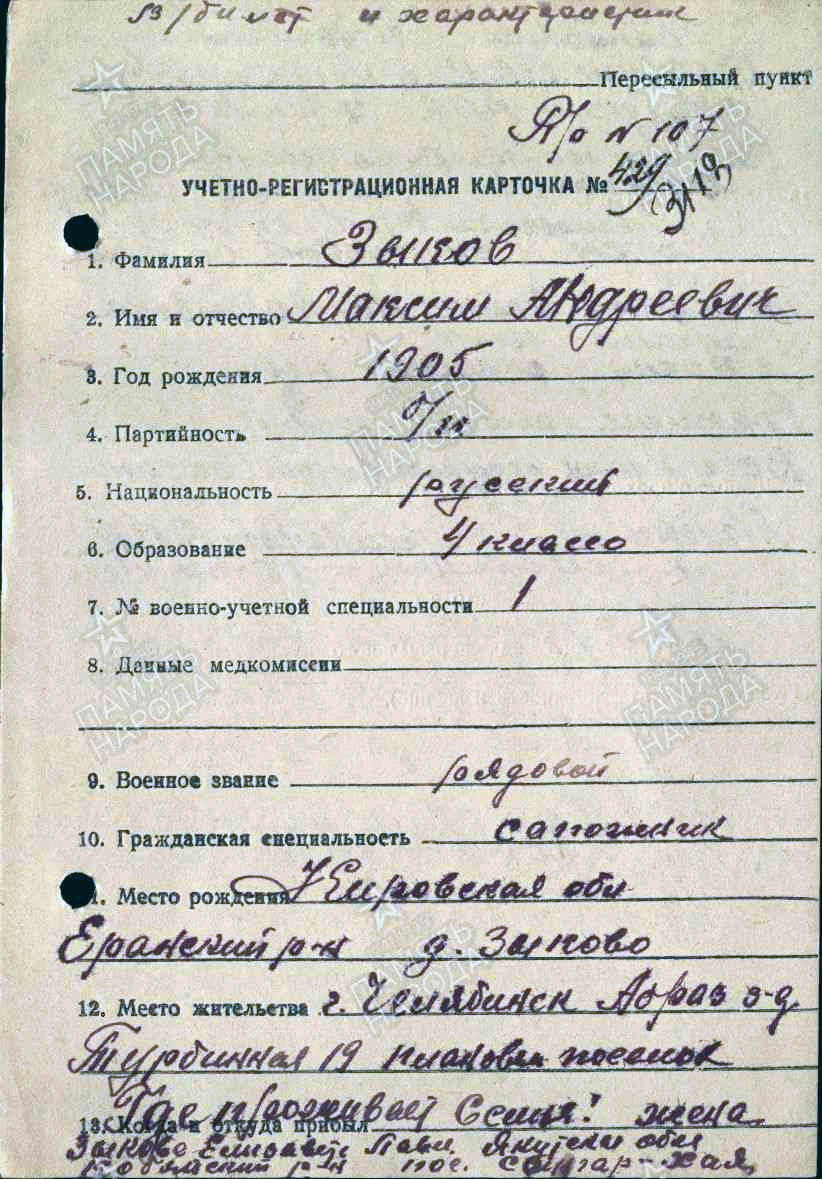 в/билет и характеристик
Пересыльный пункт
П/о N 107
УЧЕТНО-РЕГИСТРАЦИОННАЯ КАРТОЧКА № 429
3119
1. Фамилия Зыков
2. Имя и отчество Максим Андреевич
3. Год рождения 1905
4. Партийность б/п
5. Национальность русский
6. Образование 4 класса
7. № военно-учетной специальности 1
8. Данные медкомиссии
9. Военное звание рядовой
10. Гражданская специальность сапожник
11. Место рождения Кировская обл
Еранский р-н д. Зыково
12. Место жительства г. Челябинск Абраз з-д
Турбинная 19 плановый поселок
Где проживает Семья: жена
13. Когда и откуда прибыл
Зыкова Елизавета Павл. Якутская обл
Кобяйский р-н пос. Сангар-Хая
ПАМЯТЬ НАРОДА
ПАМЯТЬ НАРОДА
ПАМЯТЬ НАРОДА
ПАМЯТЬ НАРОДА
ПАМЯТЬ НАРОДА